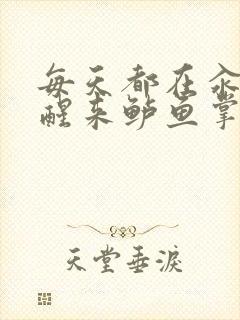 每天都在汆
醒来鲈鱼掌
天堂垂泪